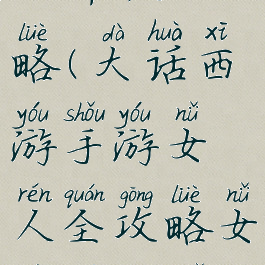 lüè dà huà xī
略(大话西
yóu shǒu yóu nǚ
游手游女
rén quán gōng lüè nǚ
人全攻略女